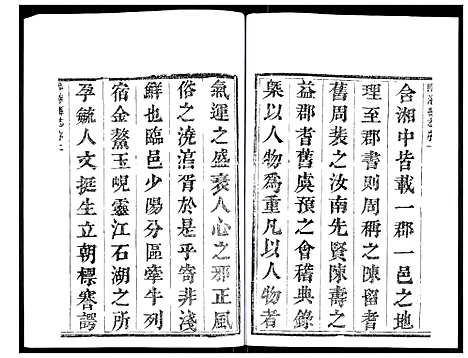 合湘中皆載一郡一邑之地
理至郡書則周稱之陳留耆
舊周裴之汝南先賢陳壽之
益郡耆舊虞預之會稽典錄
槩以人物爲重凡以人物者
氣運之盛衰人心之邪正風
俗之澆漓胥於是乎寄非淺
鮮也臨邑少陽分區牽牛列
宿金鰲玉峴靈江石湖之所
孕毓人文挺生立朝標謇諤